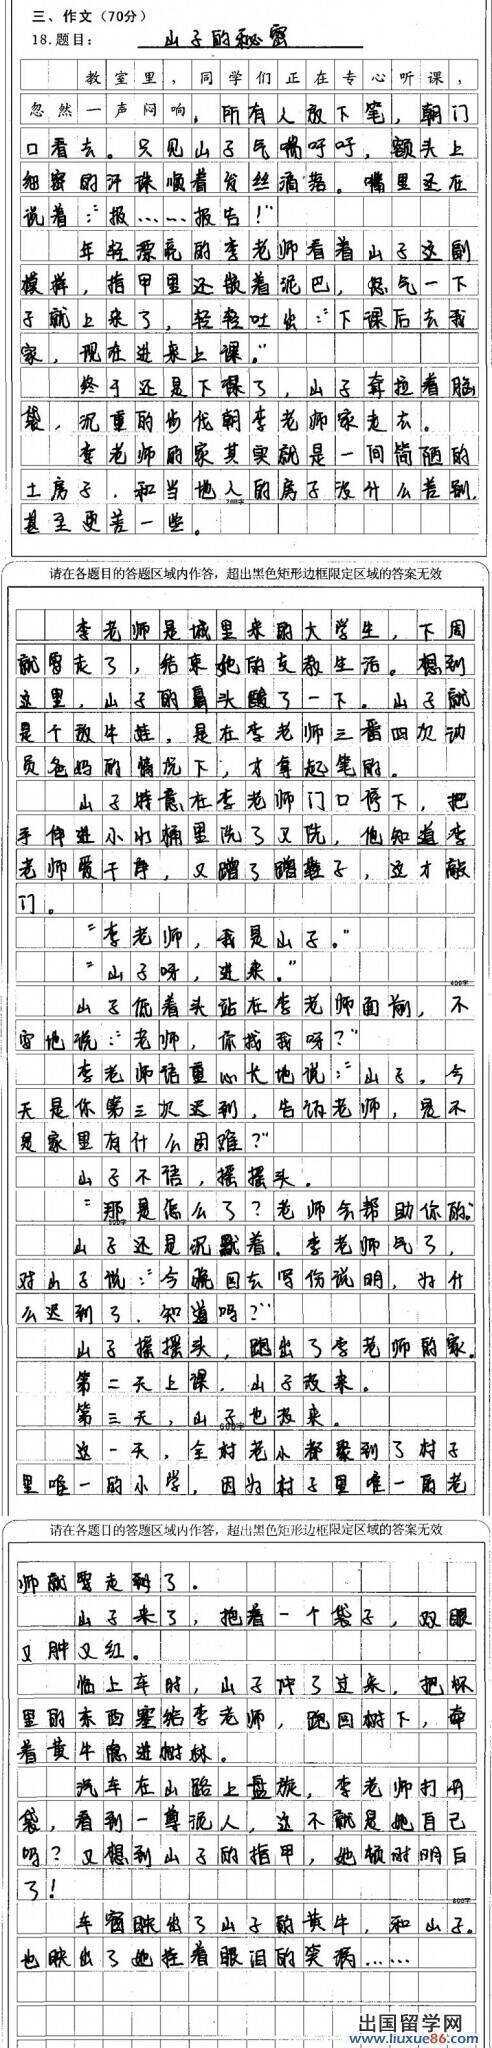 三、作文（70分）
18.题目：山子的秘密
教室里，同学们正在专心听课，
忽然一声闷响。所有人放下笔，朝门
口看去。只见山子气喘吁吁，额头上
细密的汗珠顺着发丝滴落。嘴里还在
说着：“报……报告！”
年轻漂亮的李老师看着山子这副
模样，指甲里还嵌着泥巴，怒气一下
子就上来了，轻轻吐出：“下课后去我
家，现在进来上课。”
终于还是下课了，山子耷拉着脑
袋，沉重的步伐朝李老师家走去。
李老师的家其实就是一间简陋的
土房子，和当地人的房子没什么差别，
200字
甚至更差一些。
请在各题目的答题区域内作答，超出黑色矩形边框限定区域的答案无效
李老师是城里来的大学生，下周
就要走了，结束她的支教生活。想到
这里，山子的鼻头酸了一下。山子就
是个放牛娃，是在李老师三番四次动
员爸妈的情况下，才拿起笔的。
山子特意在李老师门口停下，把
手伸进小水桶里洗了又洗，他知道李
老师爱干净，又蹭了蹭鞋子，这才敲
门。
“李老师，我是山子。”
“山子呀，进来。”
400字
山子低着头站在李老师面前，不
安地说：“老师，你找我呀？”
李老师语重心长地说：“山子，今
天是你第三次迟到，告诉老师，是不
是家里有什么困难？”
山子不语，摇摇头。
“那是怎么了？老师会帮助你的。”
500字
山子还是沉默着。李老师气了，
对山子说：“今晚回去写份说明，为什
么迟到了，知道吗？”
山子摇摇头，跑出了李老师的家。
第二天上课，山子没来。
第三天，山子也没来。
600字
这一天，全村老小都聚到了村子
里唯一的小学，因为村子里唯一的老
请在各题目的答题区域内作答，超出黑色矩形边框限定区域的答案无效
师就要走了。
山子来了，抱着一个袋子，双眼
又肿又红。
临上车时，山子冲了过来，把怀
里的东西塞给李老师，跑回树下，牵
着黄牛隐进树林。
汽车在山路上盘旋，李老师打开
袋，看到一尊泥人，这不就是她自己
吗？又想到山子的指甲，她顿时明白
了！
800字
车窗映出了山子的黄牛，和山子。
也映出了她挂着眼泪的笑涡……
出国留学网
www.liuxue86.com